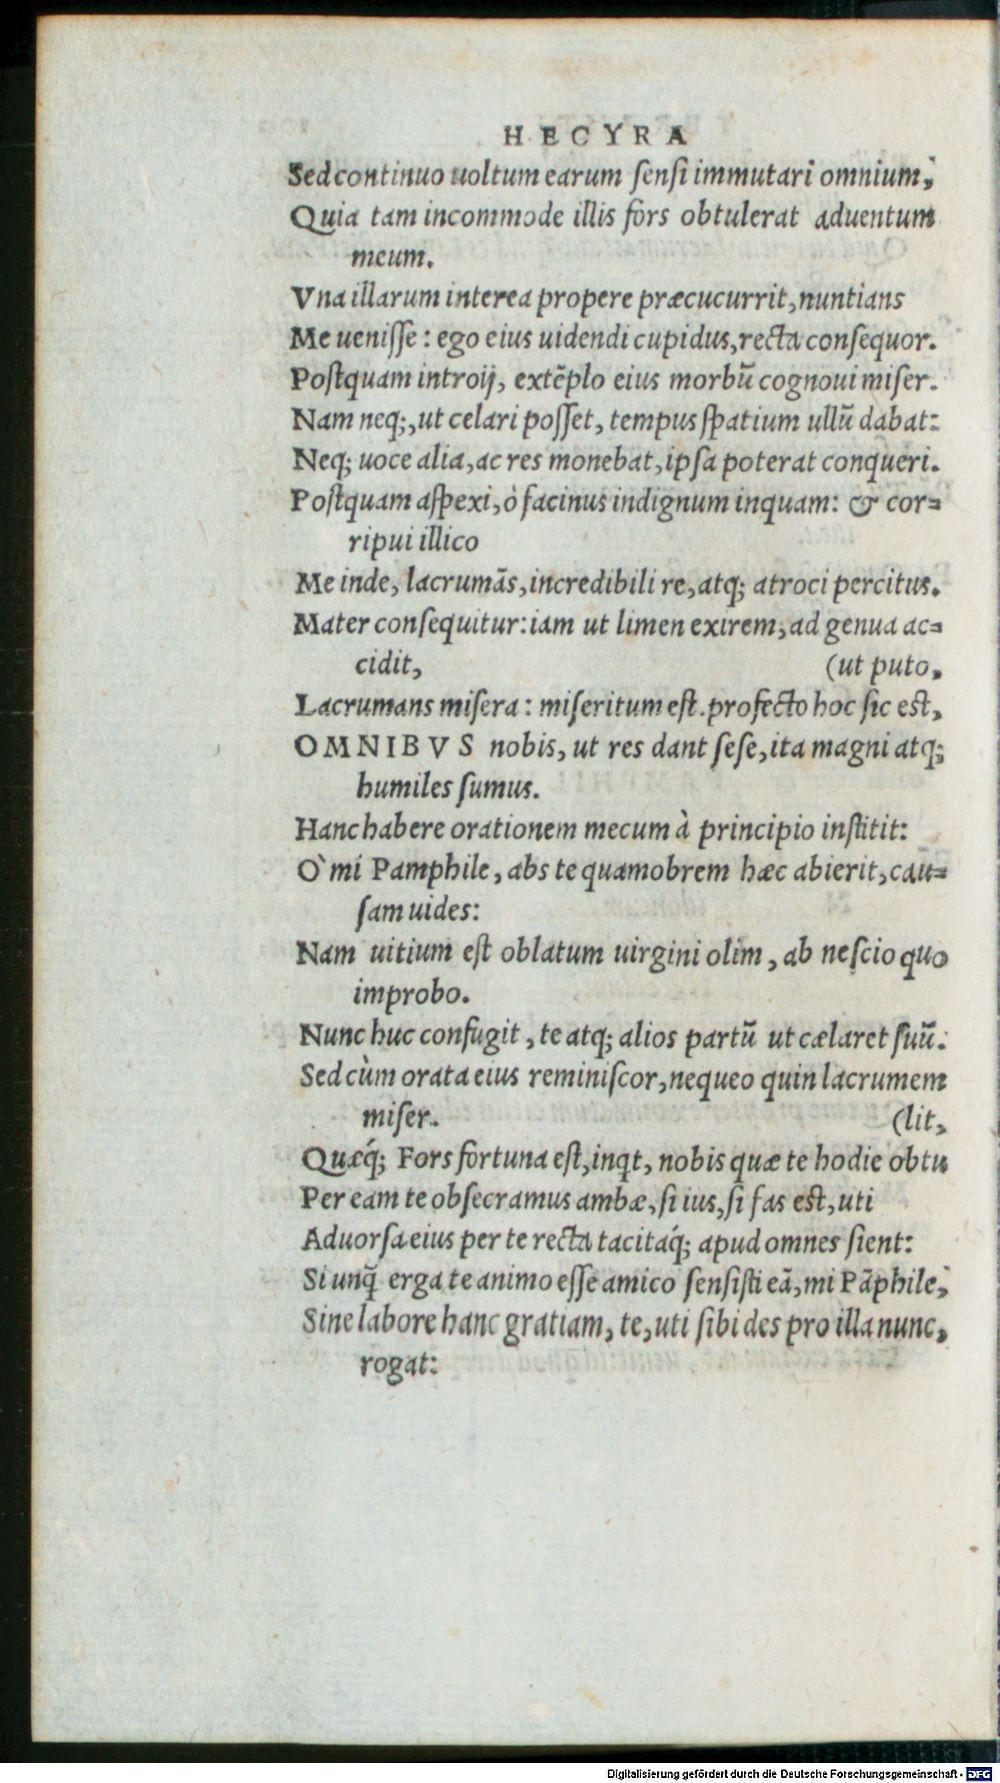 HECYRA
Sed continuo uoltum earum ſenſi immutari omnium,
Quia tam incommode illis fors obtulerat aduentum
meum.
Vna illarum interea propere præcucurrit, nuntians
Me ueniſſe: ego eius uidendi cupidus, recta conſequor.
Poſtquam introij, extẽplo eius morbũ cognoui miſer.
Nam neq;, ut celari poſſet, tempus ſpatium ullũ dabat:
Neq; uoce alia, ac res monebat, ipſa poterat conqueri.
Poſtquam aſpexi, ò facinus indignum inquam: & cor=
ripui illico
Me inde, lacrumãs, incredibili re, atq; atroci percitus.
Mater conſequitur: iam ut limen exirem, ad genua ac=
cidit, (ut puto,
Lacrumans miſera: miſeritum eſt. profecto hoc ſic eſt,
OMNIBVS nobis, ut res dant ſeſe, ita magni atq;
humiles ſumus.
Hanc habere orationem mecum à principio inſtitit:
Ò mi Pamphile, abs te quamobrem hæc abierit, cau=
ſam uides:
Nam uitium eſt oblatum uirgini olim, ab neſcio quo
improbo.
Nunc huc confugit, te atq; alios partũ ut cælaret ſuũ.
Sed cùm orata eius reminiſcor, nequeo quin lacrumem
miſer. (lit,
Quæq́; Fors fortuna eſt, inqt, nobis quæ te hodie obtu
Per eam te obſecramus ambæ, ſi ius, ſi fas eſt, uti
Aduorſa eius per te recta tacitaq́; apud omnes ſient:
Si unq̃ erga te animo eſſe amico ſenſiſti eã, mi Pãphile,
Sine labore hanc gratiam, te, uti ſibi des pro illa nunc,
rogat:
Digitalisierung gefördert durch die Deutsche Forschungsgemeinschaft - DFG